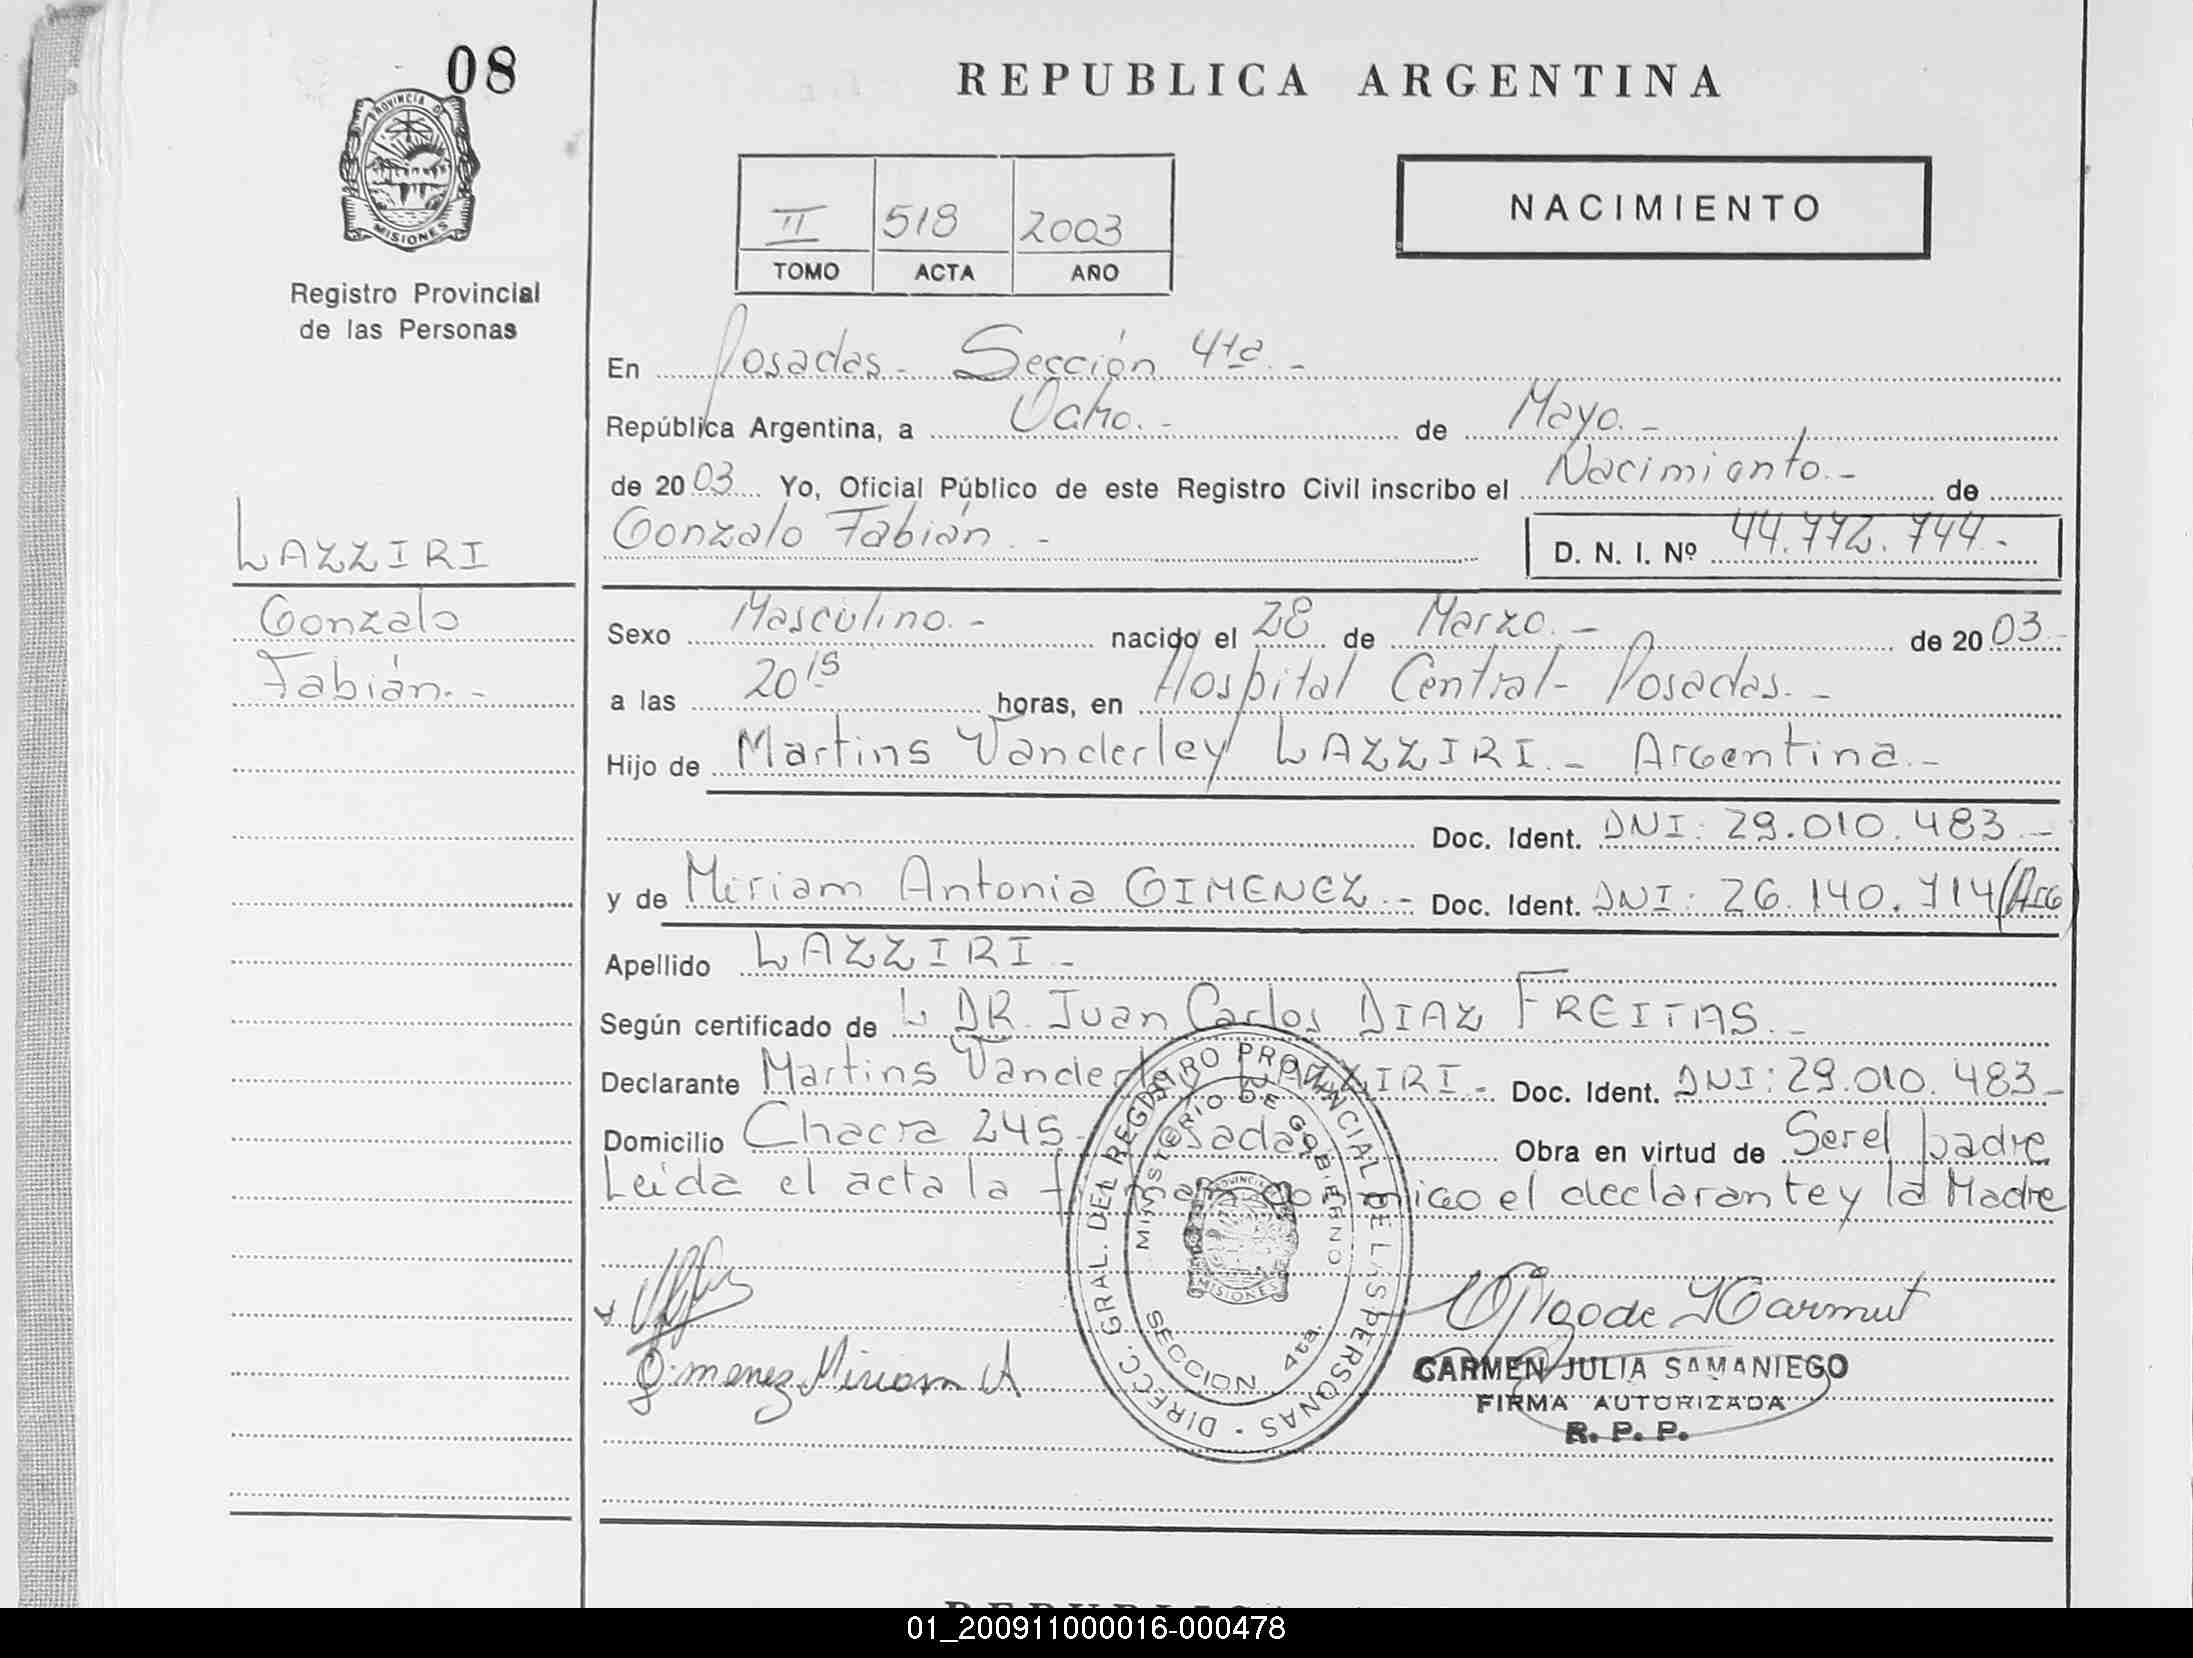 08
PROVINCIA DE
MISIONES
Registro Provincial
de las Personas
LAZZIRI
Gonzalo
Fabián.-
REPUBLICA ARGENTINA
NACIMIENTO
II 518 2003
TOMO ACTA AÑO
En Posadas - Sección 4ta.-
República Argentina, a Ocho.- de Mayo.-
de 2003 Yo, Oficial Público de este Registro Civil inscribo el Nacimiento.- de
Gonzalo Fabián.- D. N. I. Nº 44.772.744.-
Sexo Masculino.- nacido el 28 de Marzo.- de 2003.-
a las 20 15 horas, en Hospital Central - Posadas.-
Hijo de Martins Vanderley LAZZIRI.- Argentina.-
Doc. Ident. DNI: 29.010.483.-
y de Miriam Antonia GIMENEZ.- Doc. Ident. DNI: 26.140.714 (Arg)
Apellido LAZZIRI.-
Según certificado de L DR. Juan Carlos DIAZ FREITAS.-
Declarante Martins Vanderley LAZZIRI.- Doc. Ident. DNI: 29.010.483.-
Domicilio Chacra 245 - Posadas Obra en virtud de Ser el padre
Leida el acta la firman conmigo el declarante y la Madre
DIRECC. GRAL. DEL REGISTRO PROVINCIAL DE LAS PERSONAS -
MINISTERIO DE GOBIERNO
PROVINCIA
MISIONES
SECCION 4ta.
Gimenez Miriam A
CARMEN JULIA SAMANIEGO
FIRMA AUTORIZADA
R. P. P.
01_200911000016-000478